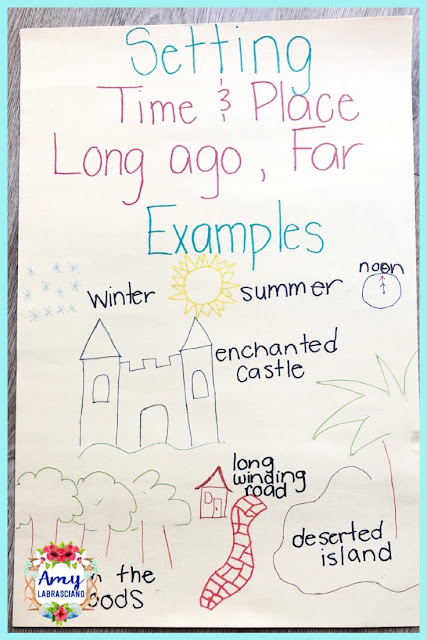 Setting
Time & Place
Long ago, Far
Examples
winter
summer
noon
enchanted
castle
long
winding
road
deserted
island
the
Amy
LABRASCIANO